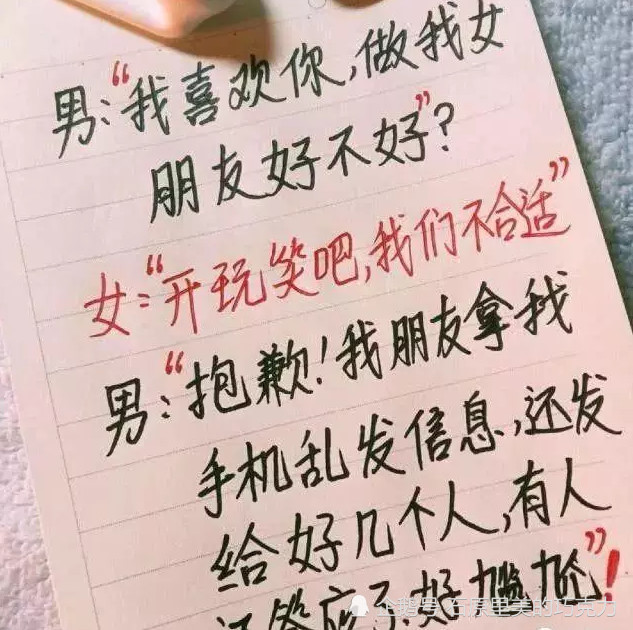 男:“我喜欢你,做我女
朋友好不好”?
女:“开玩笑吧,我们不合适”
男:“抱歉!我朋友拿我
手机乱发信息,还发
给好几个人,有人
答应了好尴尬”!
企鹅号 石原里美的巧克力